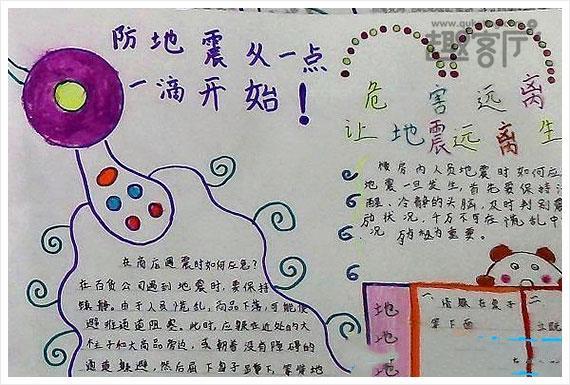 防地震从一点
一滴开始!
危害远离
让地震远离生
楼房内人员地震时如何应
地震一旦发生,首先要保持清
醒、冷静的头脑,及时判别震
动状况,千万不可在慌乱中
况,为重要。
在商店遇震时如何应急?
在百货公司遇到地震时,要保持
镇静。由于人员慌乱,商品下落,可能使
避难通道阻塞。此时,应躲在近处的大
柱子和大商品旁边,或朝着没有障碍的
通道躲避,然后屈下身子蹲下,等待地
地
地
地
一
在桌子
下面
二
趣客厅